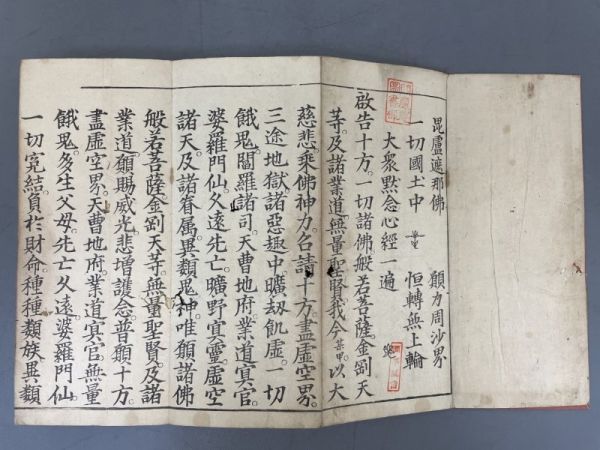 毘盧遮那佛　願力周沙界
一切國土中　恒轉無上輪
大衆黙念心經一遍
啟告十方一切諸佛般若菩薩。金剛天
等。及諸業道無量聖賢。我今某甲以大
慈悲。乘佛神力。召請十方盡虛空界。
三途地獄諸惡趣中曠劫飢虛。一切
餓鬼。閻羅諸司。天曹地府業道冥官。
婆羅門仙。久遠先亡。曠野冥靈。虛空
諸天。及諸眷属。異類鬼神。唯願諸佛
般若菩薩金剛天等。無量聖賢。及諸
業道。願賜威光。悲增護念。普願十方。
盡虛空界。天曹地府。業道冥官。無量
餓鬼。多生父母。先亡久遠。婆羅門仙。
一切冤結。負於財命。種種類族。異類